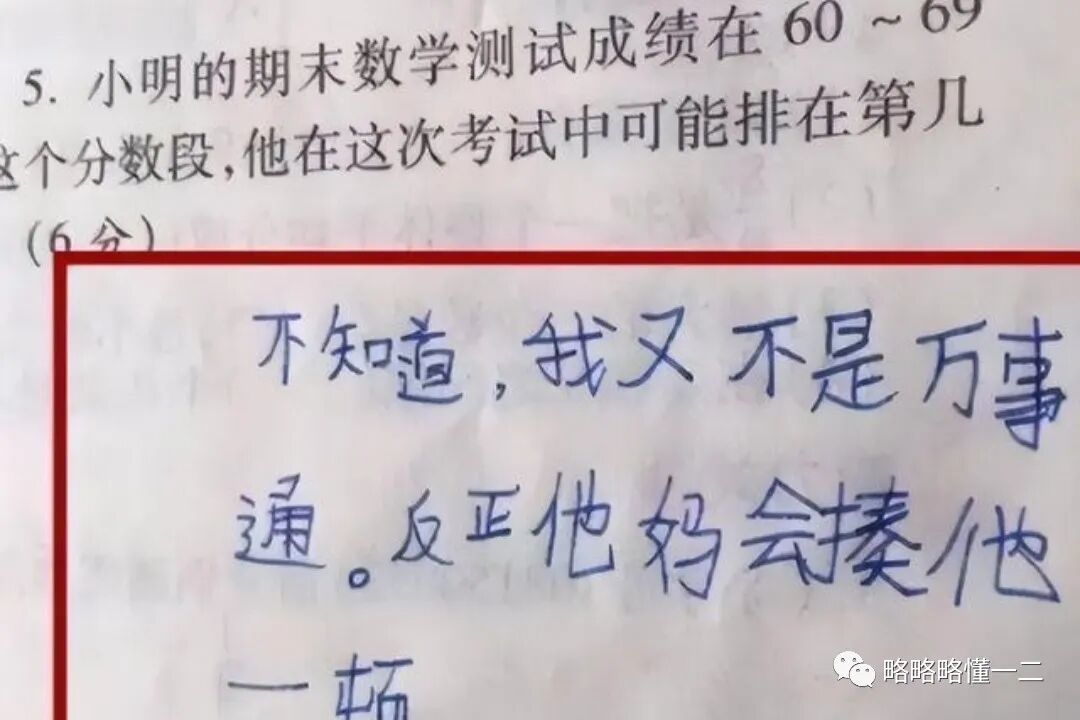 5. 小明的期末数学测试成绩在 60 ~ 69
这个分数段,他在这次考试中可能排在第几
(6 分)
不知道,我又不是万事
通。反正他妈会揍他
一顿
略略略懂一二